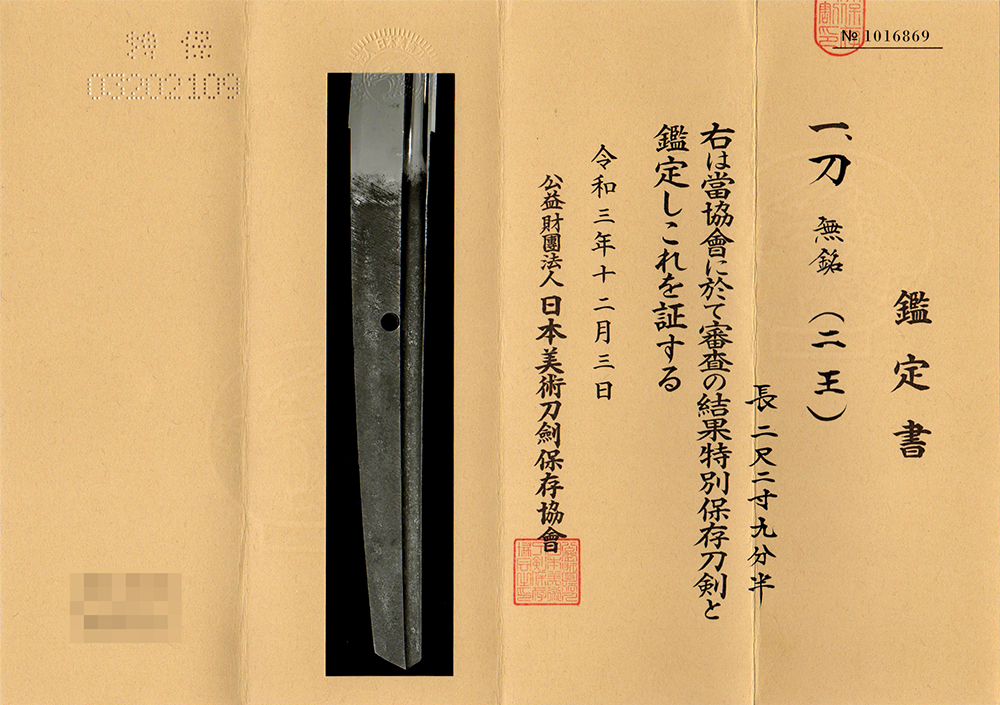 № 1016869
鑑定書
一、刀 無銘（二王）
長二尺二寸九分半
右は當協會に於て審査の結果特別保存刀剣と
鑑定しこれを証する
令和三年十二月三日
公益財團法人 日本美術刀劍保存協會
特保
03202109